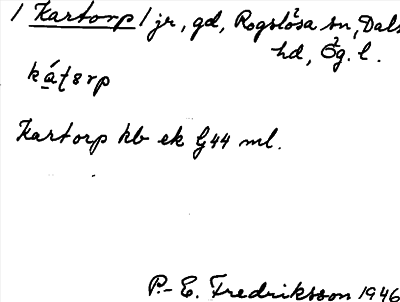 / Kartorp / jr, gd, Rogslösa sn, Dals
hd, Ög. l.
káʈɜrp
Kartorp kb ek G44 ml.
P.-E. Fredriksson 1946